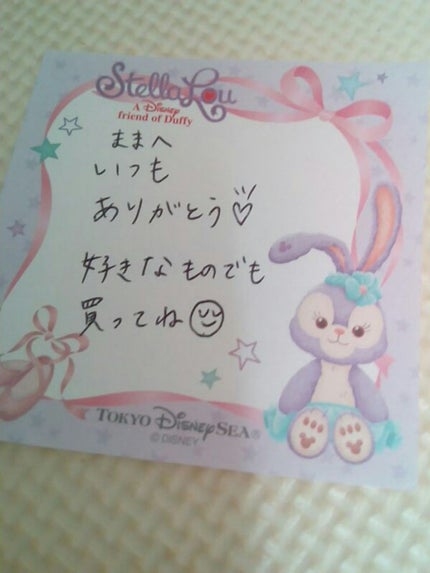 StellaLou
A Disney
friend of Duffy
ままへ
いつも
ありがとう♡
好きなものでも
買ってね
TOKYO DISNEYSEA®
© DISNEY